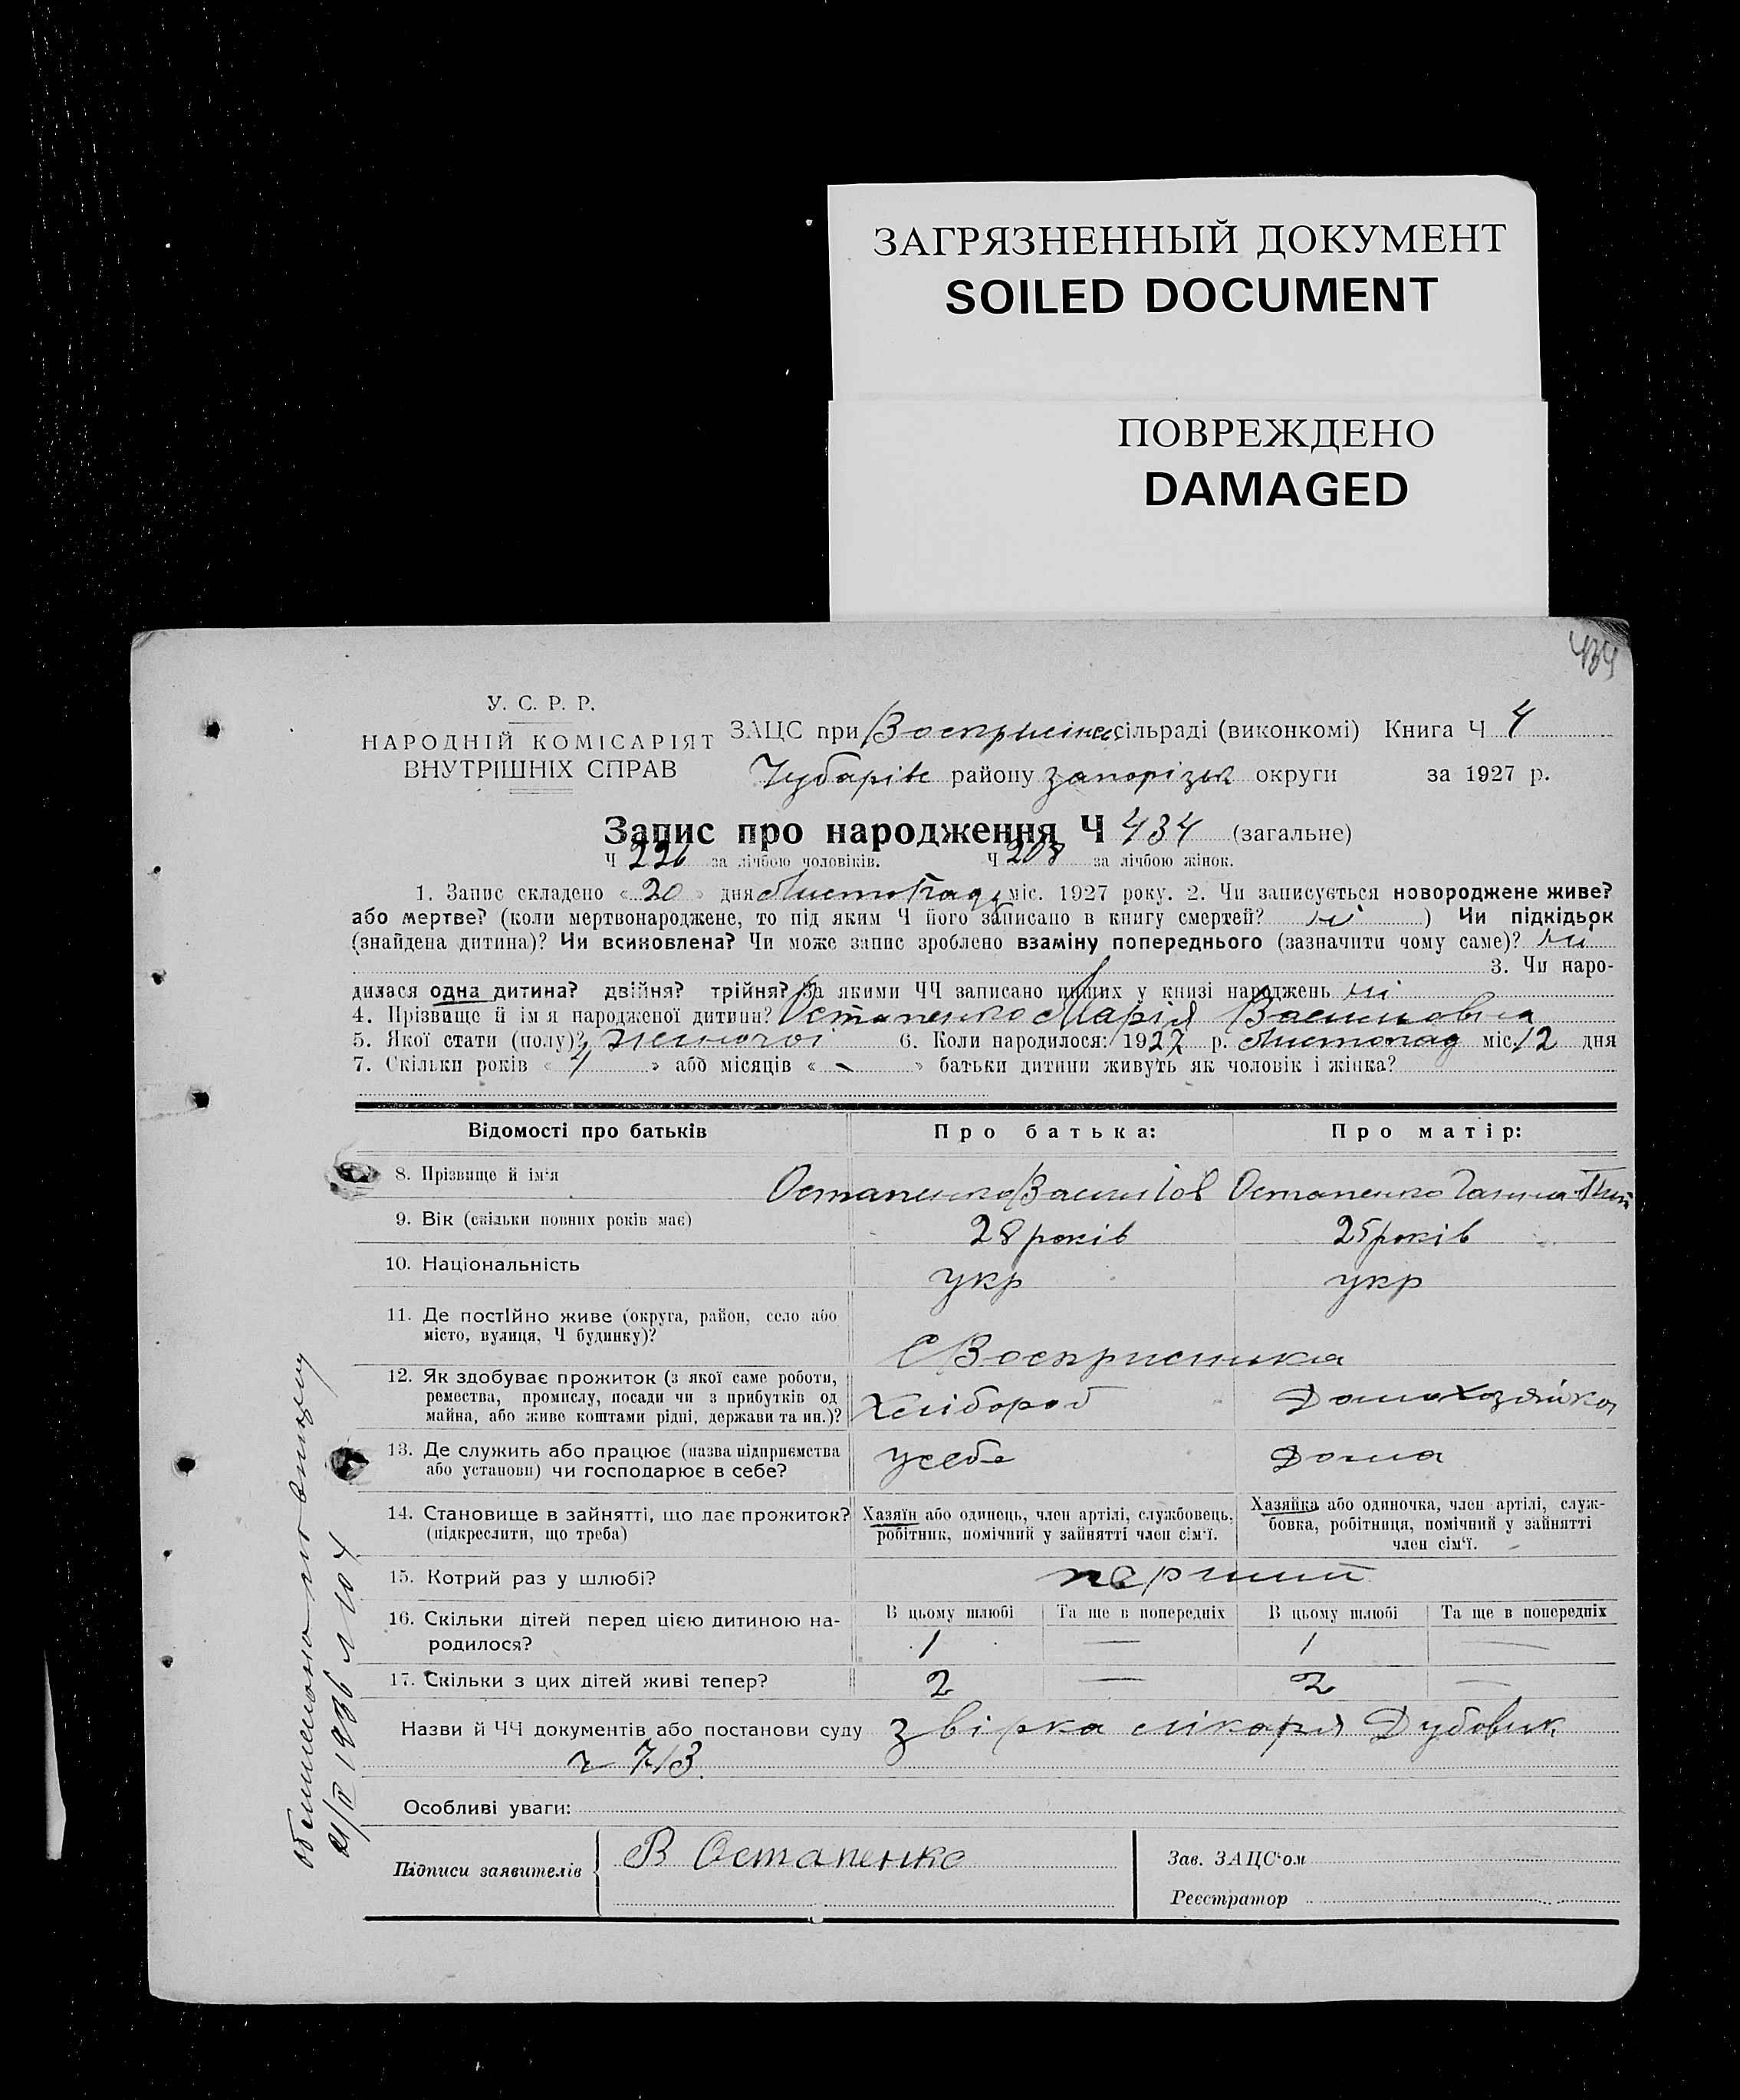 ЗАГРЯЗНЕННЫЙ ДОКУМЕНТ
SOILED DOCUMENT
ПОВРЕЖДЕНО
DAMAGED
434
У. С. Р. Р.
НАРОДНІЙ КОМІСАРІЯТ
ВНУТРІШНІХ СПРАВ
ЗАЦС при сільраді (виконкомі) Книга Ч 4
Чубарівс району запорізьк округи за 1927 р.
Запис про народження Ч 434 (загальне)
Ч 226 за лічбою чоловіків. Ч 208 за лічбою жінок.
1. Запис складено « 20 » дня Листопад міс. 1927 року. 2. Чи записується новороджене живе?
або мертве? (коли мертвонароджене, то під яким Ч його записано в книгу смертей? ні ) Чи підкідьок
(знайдена дитина)? Чи всиновлена? Чи може запис зроблено взаміну попереднього (зазначити чому саме)? ні
3. Чи наро-
дилася одна дитина? двійня? трійня? За якими ЧЧ записано инших у книзі народжень ні
4. Прізвище й ім'я народженої дитини? Остапенко Марія Василовна
5. Якої стати (полу)? жіночої 6. Коли народилося: 1927 р. Листопад міс. 12 дня
7. Скільки років « 4 » або місяців « - » батьки дитини живуть як чоловік і жінка?
Відомості про батьків Про батька: Про матір:
8. Прізвище й ім'я Остапенко Васил Іов Остапенко Ганна
9. Вік (скільки повних років має) 28 років 25 років
10. Національність укр укр
11. Де постійно живе (округа, район, село або
місто, вулиця, Ч будинку)?
С Воскрисинка
12. Як здобуває прожиток (з якої саме роботи,
ремества, промислу, посади чи з прибутків од
майна, або живе коштами рідні, держави та ин.)? Хлібороб Домохозяйка
13. Де служить або працює (назва підприємства
або установи) чи господарює в себе? усебе Дома
14. Становище в зайнятті, що дає прожиток?
(підкреслити, що треба)
Хазяїн або одинець, член артілі, службовець,
робітник, помічний у зайнятті член сім'ї.
Хазяйка або одиночка, член артілі, служ-
бовка, робітниця, помічний у зайнятті
член сім'ї.
15. Котрий раз у шлюбі? перший
16. Скільки дітей перед цією дитиною на-
родилося?
В цьому шлюбі Та ще в попередніх В цьому шлюбі Та ще в попередніх
1 — 1 —
17. Скільки з цих дітей живі тепер? 2 — 2 —
Назви й ЧЧ документів або постанови суду звірка лікаря Дубовик
ч 713.
Особливі уваги:
Підписи заявителів В Остапенко
Зав. ЗАЦС'ом
Реєстратор